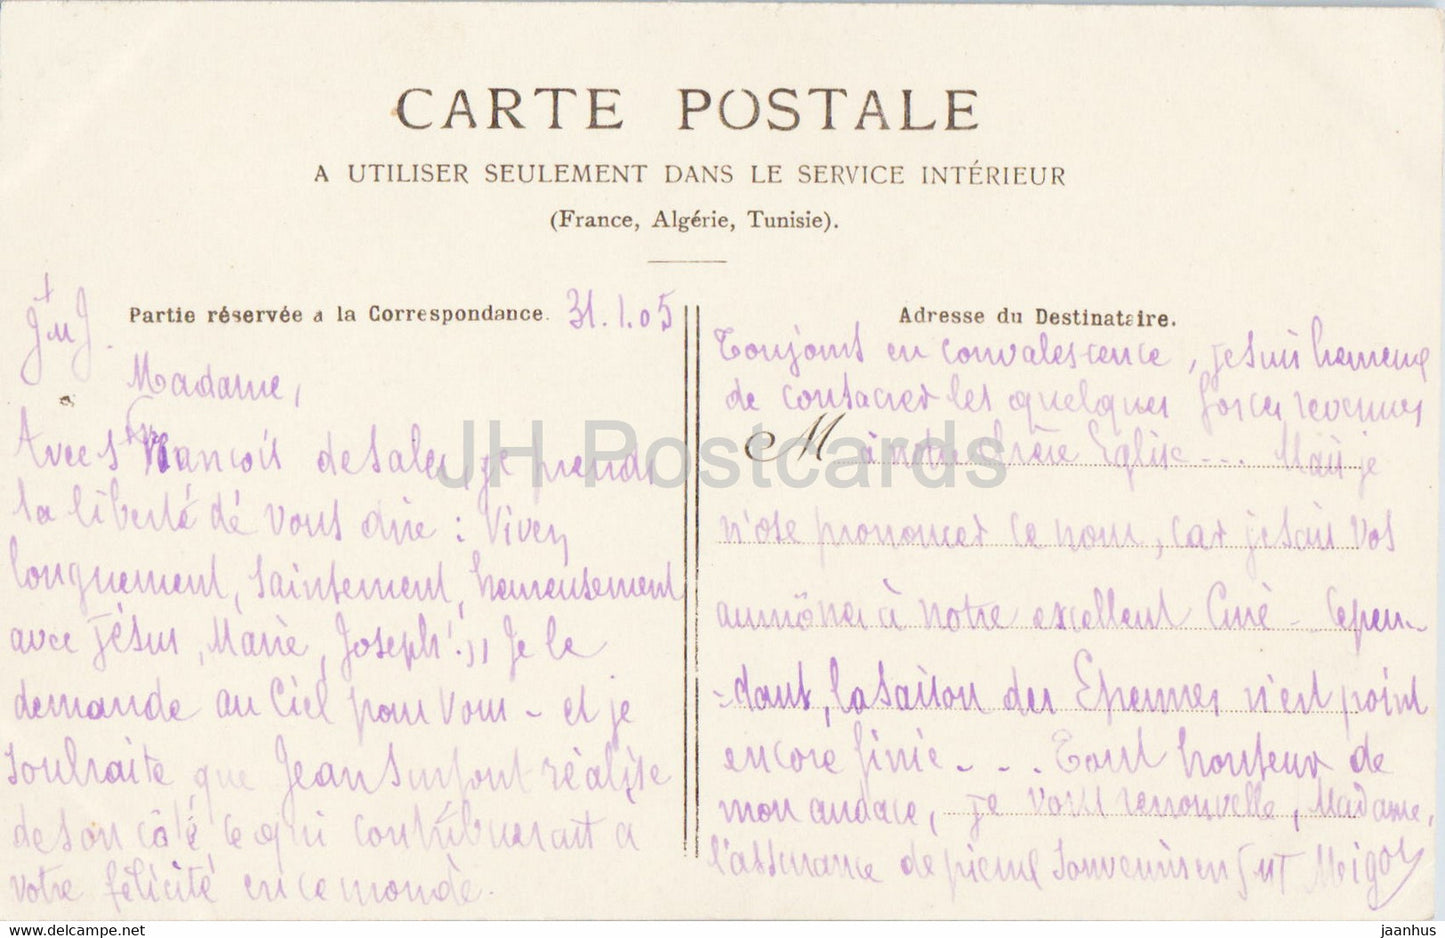 CARTE POSTALE
A UTILISER SEULEMENT DANS LE SERVICE INTÉRIEUR
(France, Algérie, Tunisie).
Partie réservée a la Correspondance.
31.1.05
+
J M J.
Madame,
Avec St François de Sales, je prends
la liberté de vous dire : Vivez
longuement, saintement, heureusement
avec Jésus, Marie, Joseph! ,, Je le
demande au Ciel pour vous - et je
souhaite que Jean réalise
de son côté ce qui contribuerait à
votre félicité en ce monde.
Adresse du Destinataire.
Toujours en convalescence, je suis heureux
de consacrer les quelques forces revenues
M
à notre chère Eglise... Mais je
n'ose prononcer ce nom, car je sais vos
aumônes à notre excellent Curé - Cepen-
-dant, la saison des Etrennes n'est point
encore finie - . . . Tout honteux de
mon audace, je vous renouvelle, Madame,
l'assurance de pieux souvenirs en
JH Postcards
www.delcampe.net
jaanhus